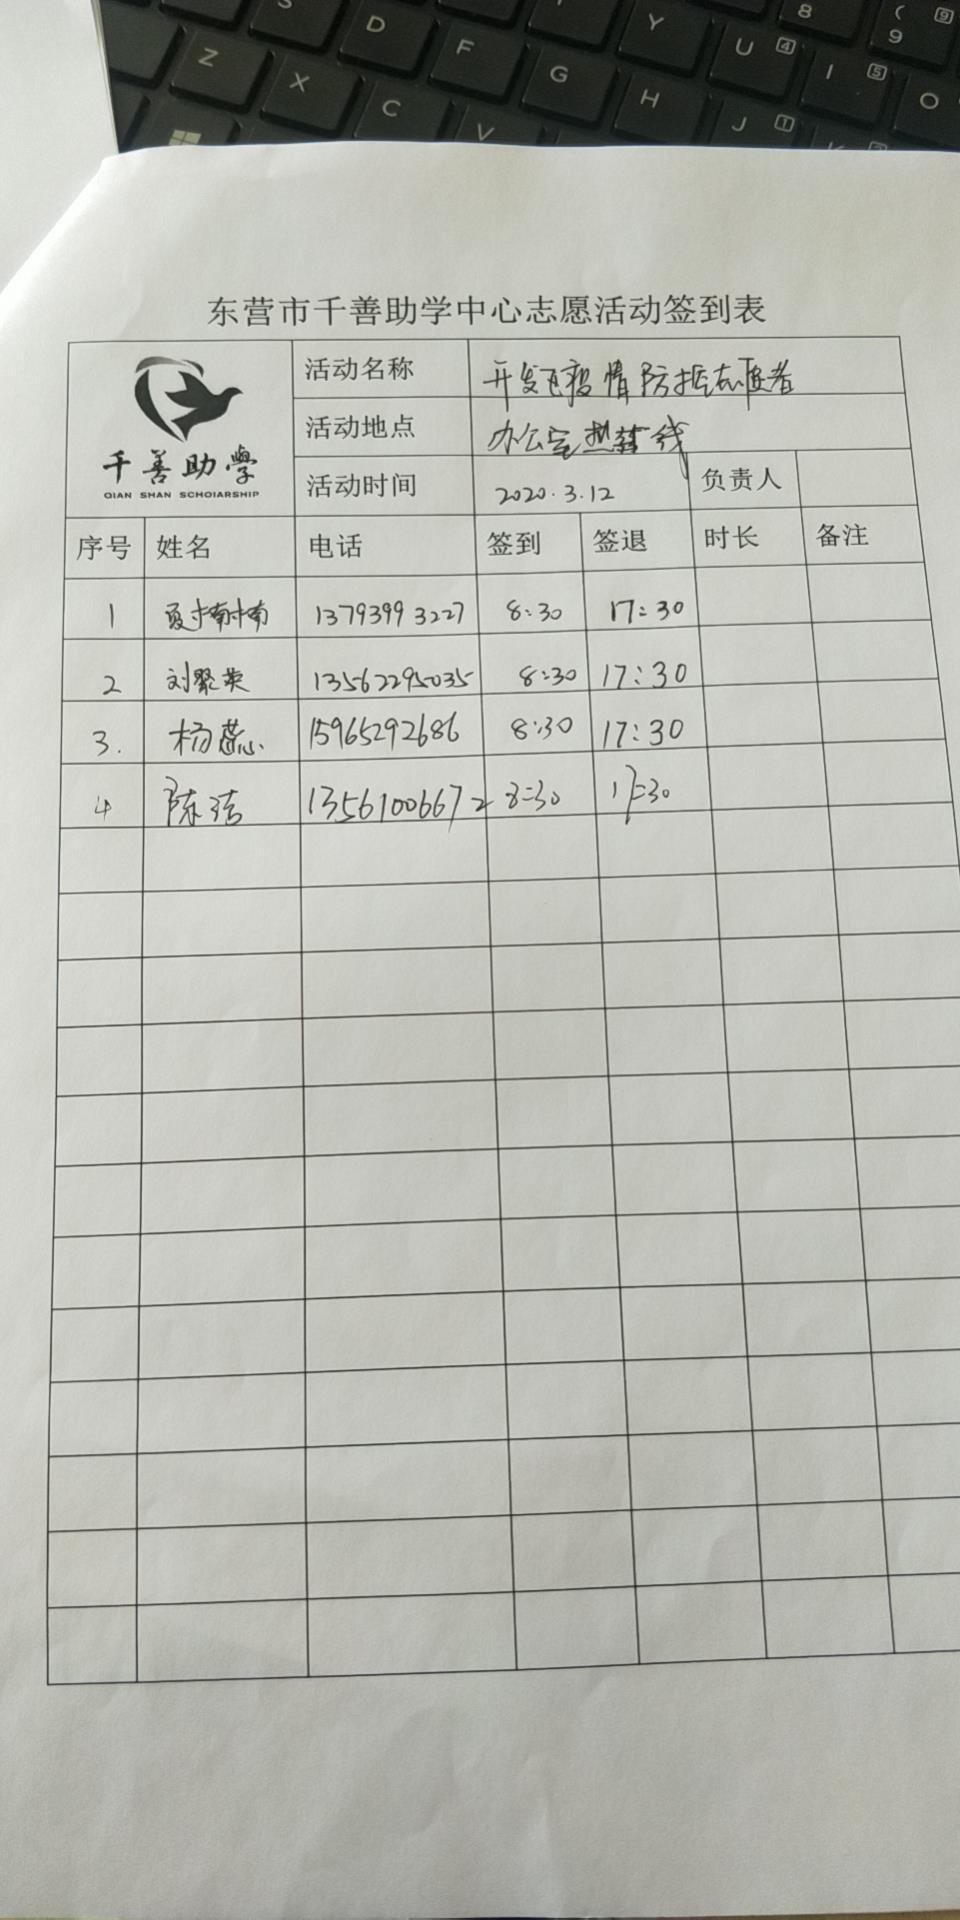 S D F Y U 4 8 ( 9 9
Z X C V G H J 1 I 5 O
东营市千善助学中心志愿活动签到表
千善助學
QIAN SHAN SCHOIARSHIP
活动名称 开发区疫情防控志愿者
活动地点 办公室热线
活动时间 2020.3.12 负责人
序号 姓名 电话 签到 签退 时长 备注
1 夏楠楠 13793993227 8:30 17:30
2 刘聚英 13562295035 8:30 17:30
3. 杨蕊 15965292686 8:30 17:30
4 陈洁 13561006672 8:30 17:30